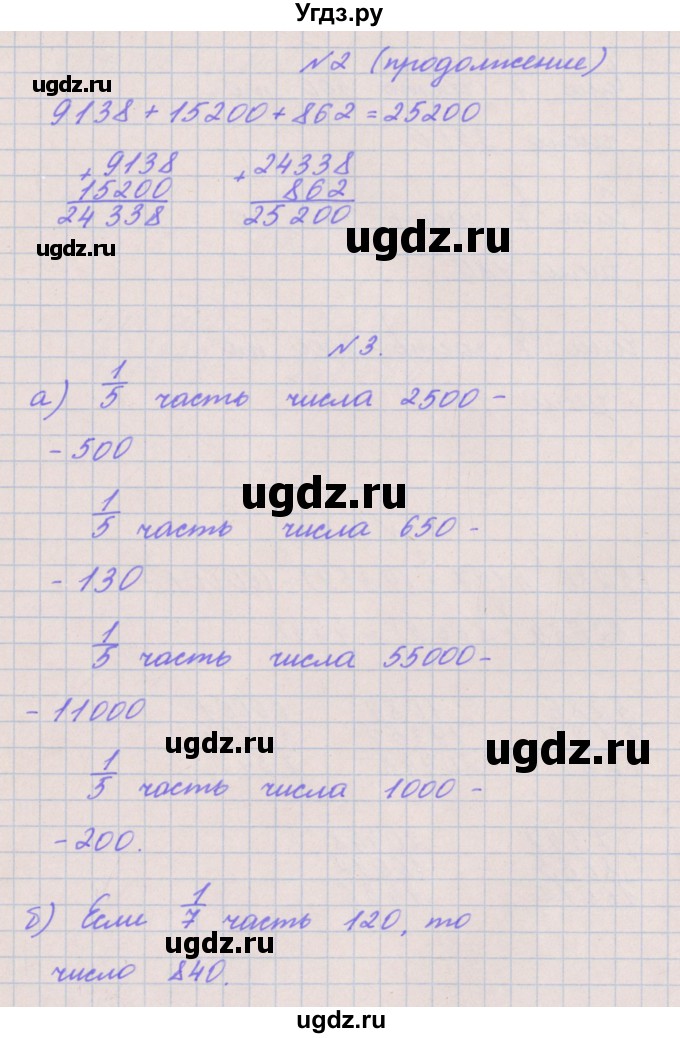 Угдз.ру
№2 (продолжение)
ugdz.ru
9138 + 15200 + 862 = 25200
+ 9138 + 24338
15200 862
24 338 25 200
ugdz.ru
ugdz.ru
№3.
а) 1/5 часть числа 2500 -
- 500
ugdz.ru
1/5 часть числа 650 -
- 130
1/5 часть числа 55000 -
- 11000
ugdz.ru
ugdz.ru
1/5 часть числа 1000 -
- 200.
б) Если 1/7 часть 120, то
ugdz.ru
число 840.
ugdz.ru